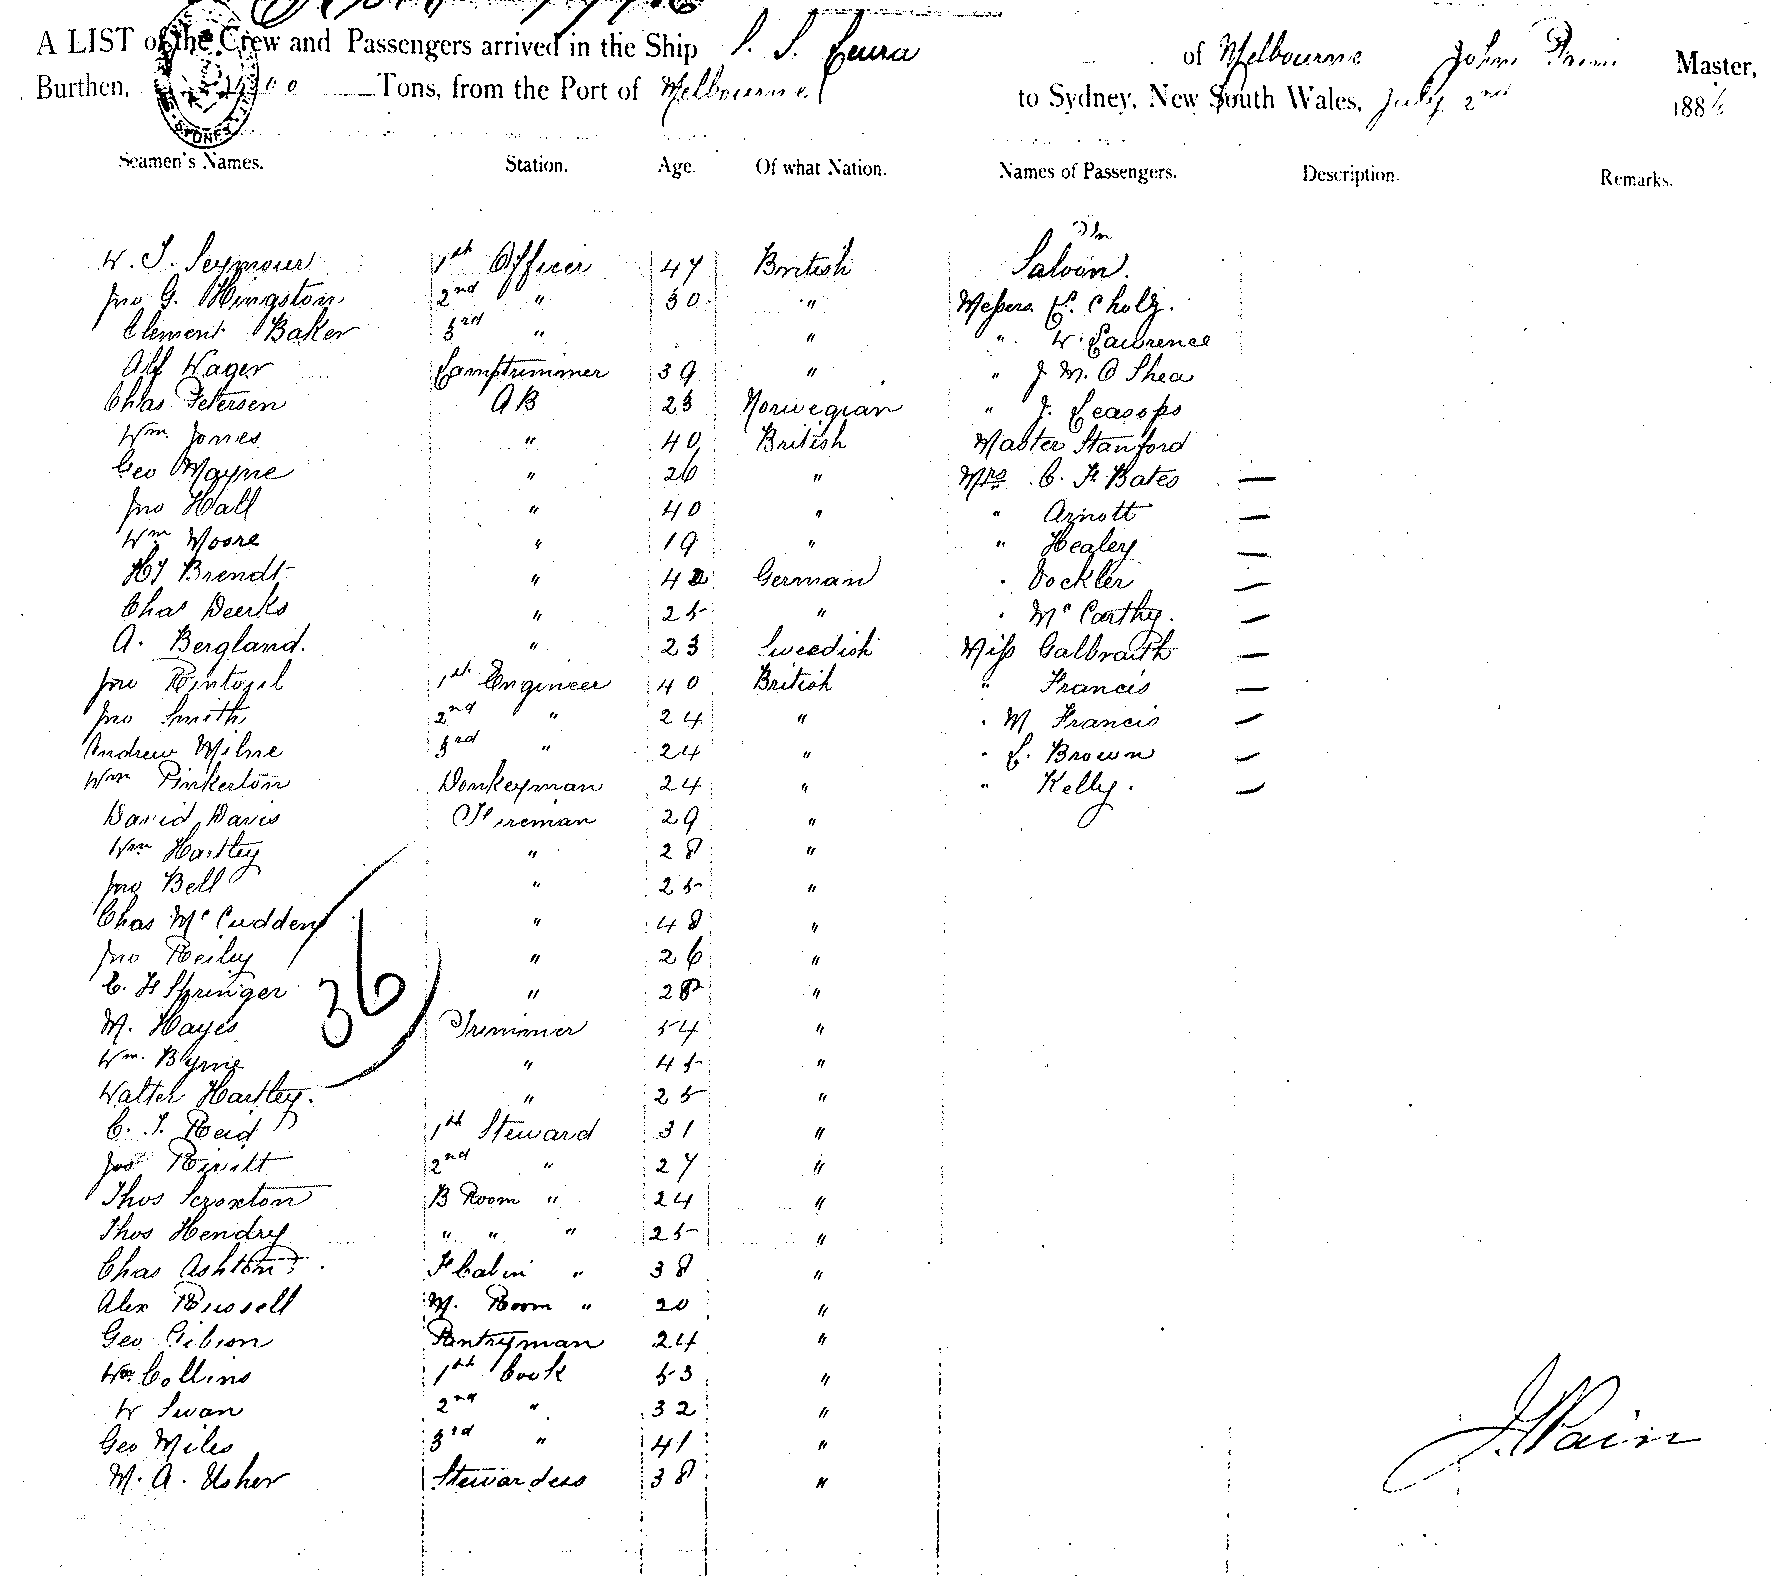 A LIST of the Crew and Passengers arrived in the Ship S. S. Leura of Melbourne John Pain Master,
Burthen, Tons, from the Port of Melbourne to Sydney, New South Wales, July 2nd 188
Seamen's Names. Station. Age. Of what Nation. Names of Passengers. Description. Remarks.
In
W. T. Seymour 1st Officer 47 British Saloon.
Jno G. Hingston 2nd " 30 " Messrs E. Cholz.
Clement Baker 3rd " " " W. Lawrence
Alf Wager Lamptrimmer 39 " " J. M. O Shea
Chas Petersen AB 23 Norwegian " J. Leasops
Wm Jones " 40 British Master Stanford
Geo Wayne " 26 " Mrs C. F. Bates —
Jno Hall " 40 " " Arnott —
Wm Moore " 19 " " Healey —
Hy Brendt " 42 German " Vockler —
Chas Deerks " 25 " " McCarthy. —
A. Bergland. " 23 Sweedish Miss Galbraith —
Jno Rintoul 1st Engineer 40 British " Francis —
Jno Smith 2nd " 24 " " M Francis —
Andrew Milne 3rd " 24 " " E. Brown —
Wm Pinkerton Donkeyman 24 " " Kelly. —
David Davis Fireman 29 "
Wm Hartley " 28 "
Jno Bell " 25 "
Chas McCudden " 48 "
Jno Reiley " 26 "
C. F Springer " 28 "
36
M. Hayes Trimmer 54 "
Wm. Byrne " 45 "
Walter Hartley. " 25 "
C. T. Reid 1st Steward 31 "
Jos Rivitt 2nd " 27 "
Thos Scroxton B Room " 24 "
Thos Hendry " " " 25 "
Chas Ashton F Cabin " 38 "
Alex Russell M. Room " 20 "
Geo Gibson Pantryman 24 "
Wm Collins 1st Cook 53 "
W Swan 2nd " 32 "
Geo Miles 3rd " 41 "
J. Pain
M. A. Usher Stewardess 38 "